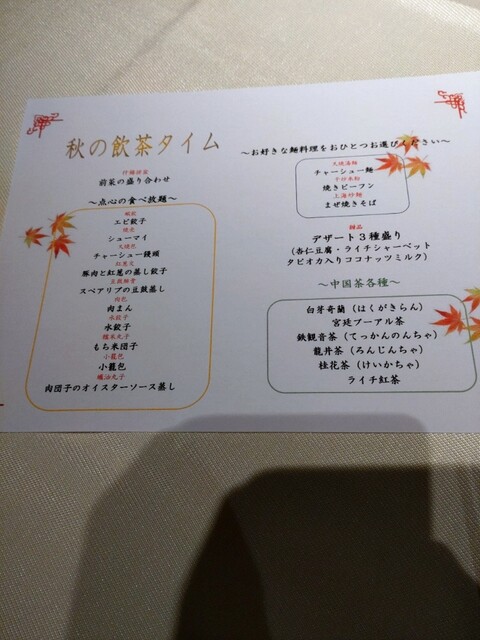 秋の飲茶タイム
前菜の盛り合わせ
～点心の食べ放題～
エビ餃子
焼売
シューマイ
叉焼包
チャーシュー饅頭
豚肉と紅葱の蒸し餃子
スペアリブの豆鼓蒸し
肉包
肉まん
水餃子
水餃子
糯米丸子
もち米団子
小籠包
小龍包
蠔油丸子
肉団子のオイスターソース蒸し
～お好きな麺料理をおひとつお選びください～
叉焼湯麺
チャーシュー麺
干炒米粉
焼きビーフン
上海炒麺
まぜ焼きそば
甜品
デザート３種盛り
（杏仁豆腐・ライチシャーベット
タピオカ入りココナッツミルク）
～中国茶各種～
白芽奇蘭（はくがきらん）
宮廷プーアル茶
鉄観音茶（てっかんのんちゃ）
龍井茶（ろんじんちゃ）
桂花茶（けいかちゃ）
ライチ紅茶